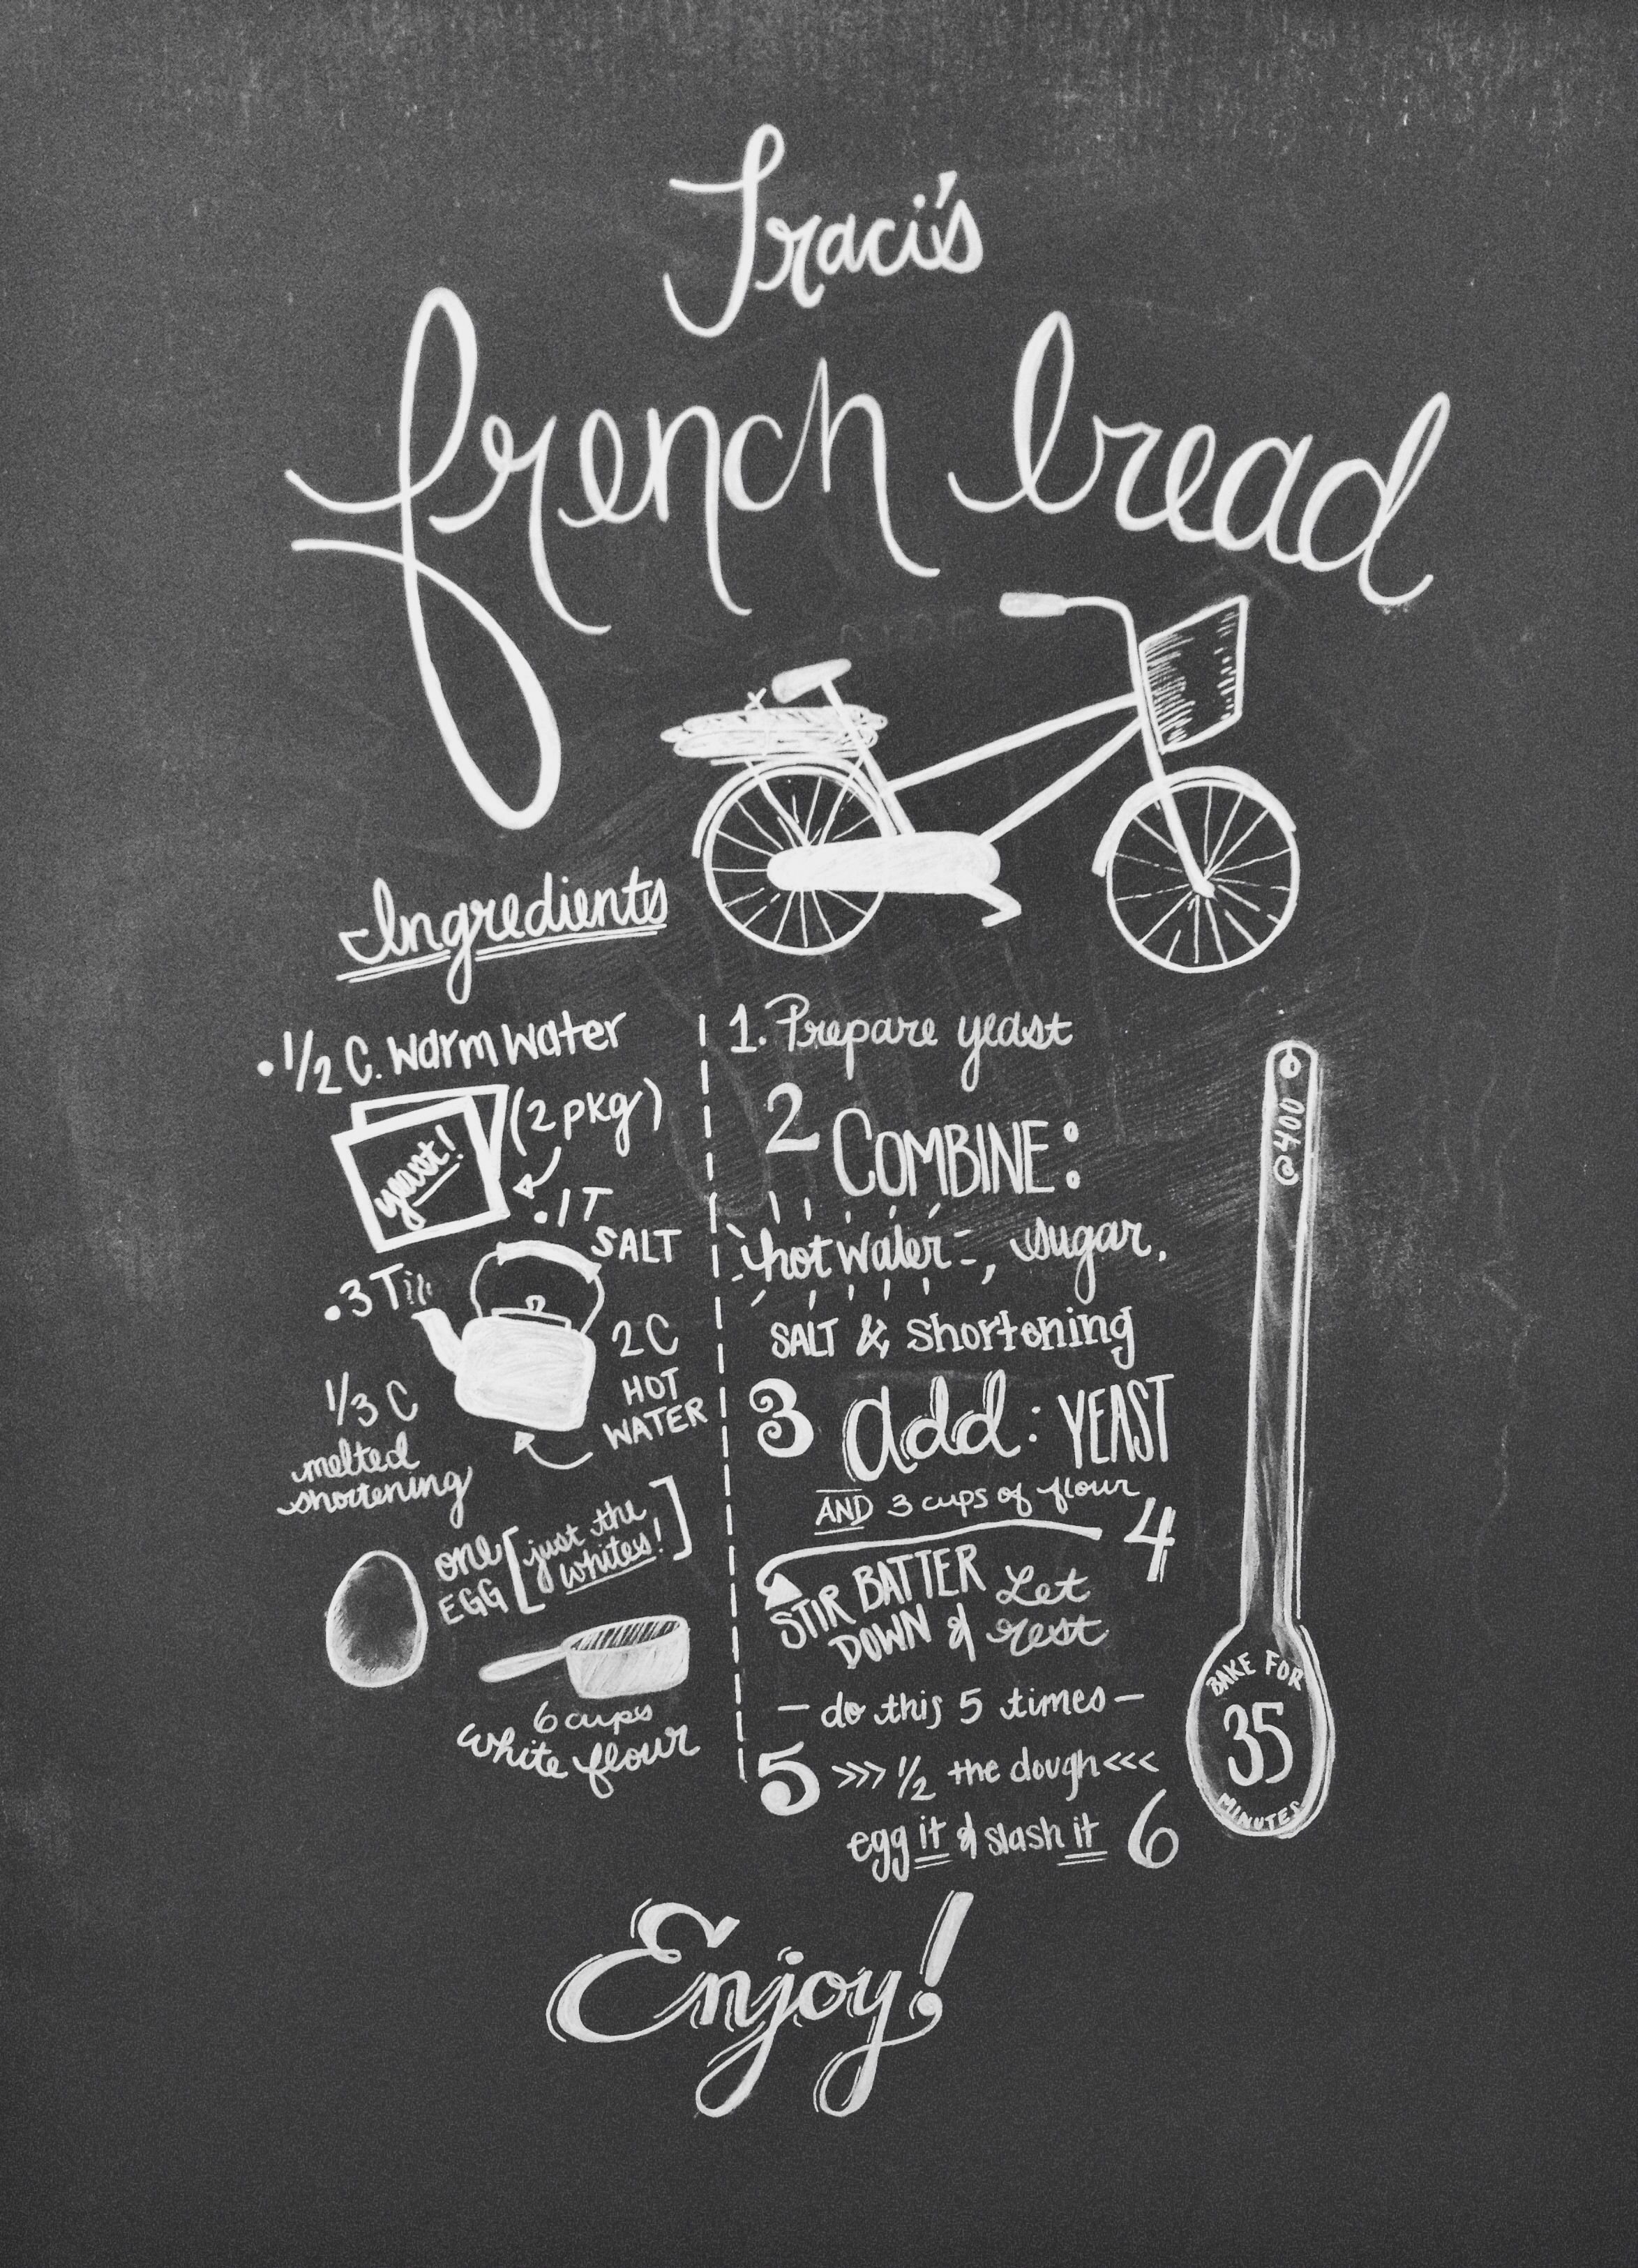 Traci's
french bread
Ingredients
• 1/2 C. warm water
yeast!
(2 pkg)
• 1 T
SALT
• 3 T
2 C
HOT
WATER
1/3 C
melted
shortening
one
EGG
[just the
whites!]
6 cups
white flour
1. Prepare yeast
2 COMBINE:
hot water, sugar,
SALT & shortening
3 add: YEAST
AND 3 cups of flour
4
STIR BATTER
DOWN & Let
rest
- do this 5 times -
5 >>> 1/2 the dough <<<
egg it & slash it 6
@400
BAKE FOR
35
MINUTES
Enjoy!